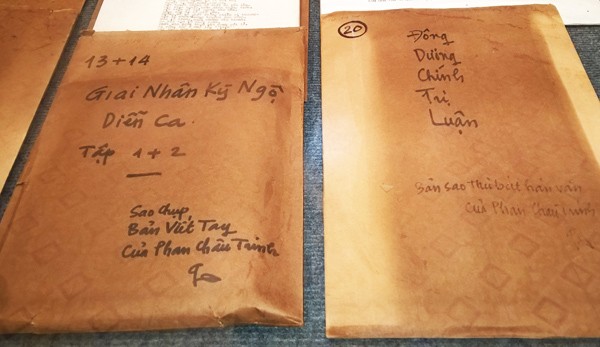 13+14
Giai Nhân Kỳ Ngộ
Diễn Ca.
Tập 1+2
Sao chụp,
Bản Viết Tay
Của Phan Châu Trinh
20
Đông
Dương
Chính
Trị
Luận
Bản sao thủ bút hán văn
Của Phan Châu Trinh